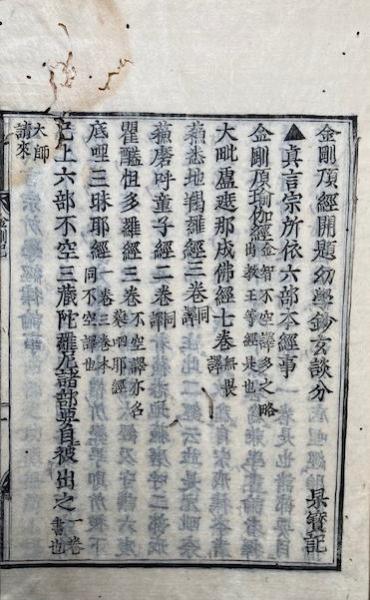 金剛頂經開題幼學鈔玄談分
杲寶記
▲真言宗所依六部本經事
金剛頂瑜伽經金智不空譯多之略
出教王等經是也
大毗盧遮那成佛經七卷無畏
譯
蘇悉地羯羅經三卷同
蘇磨呼童子經二卷同
譯
瞿醯怛多羅經三卷不空譯亦名
底哩三昧耶經一卷三卷本
同不空譯也
已上六部不空三藏陀羅尼諸部要目被出之一卷
書也
大師
請來